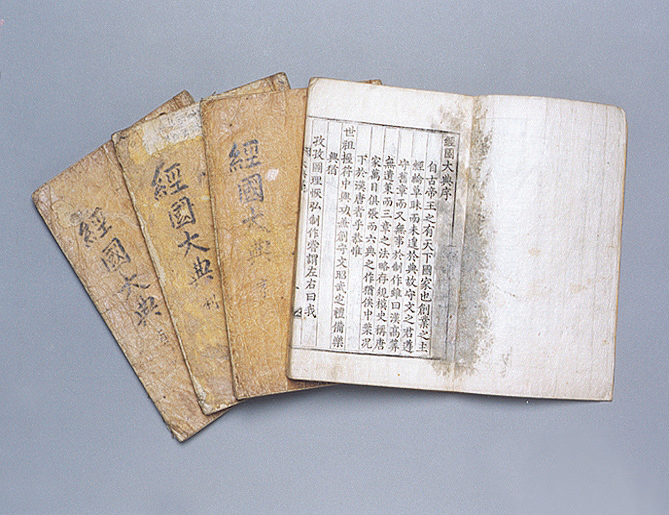 經國大典
經國大典
經國大典
經國大典序
自古帝王之有天下國家也創業之主
經綸草昧而未遑於典故守文之君遵
守舊章而又無事於制作雖曰漢高筭
無遺策而三章之法略存規模史稱唐
家萬目俱張而六典之作猶俟中葉況
下於漢唐者乎恭惟
世祖握符中興功兼創守文昭武定禮備樂
興猶
孜孜圖理恢弘制作嘗謂左右曰我